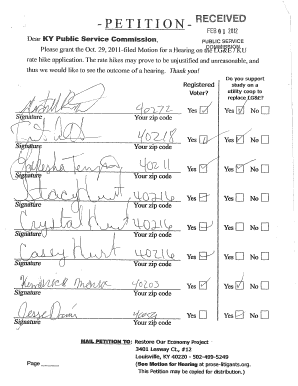 - PETITION -
RECEIVED
FEB 01 2012
PUBLIC SERVICE
COMMISSION
Dear KY Public Service Commission,
Please grant the Oct. 29, 2011-filed Motion for a Hearing on the LG&E / KU
rate hike application. The rate hikes may prove to be unjustified and unreasonable, and
thus we would like to see the outcome of a hearing. Thank you!
Registered
Voter?
Do you support
study on a
utility coop to
replace LG&E?
40272 Yes No Yes No
Signature Your zip code
40218 Yes Yes No
Signature Your zip code
40211 Yes Yes No
Signature Your zip code
Stacy Hurt 40216 Yes Yes No
Signature Your zip code
Crystal Hurt 40216 Yes Yes No
Signature Your zip code
Casey Hurt 40216 Yes Yes No
Signature Your zip code
40203 Yes Yes No
Signature Your zip code
Jesse Yes Yes No
Signature Your zip code
MAIL PETITION TO: Restore Our Economy Project
3401 Leeway Ct., #12
Louisville, KY 40220 - 502-499-5249
(See Motion for Hearing at prose-litigants.org.
This Petition may be copied for distribution.)
Page